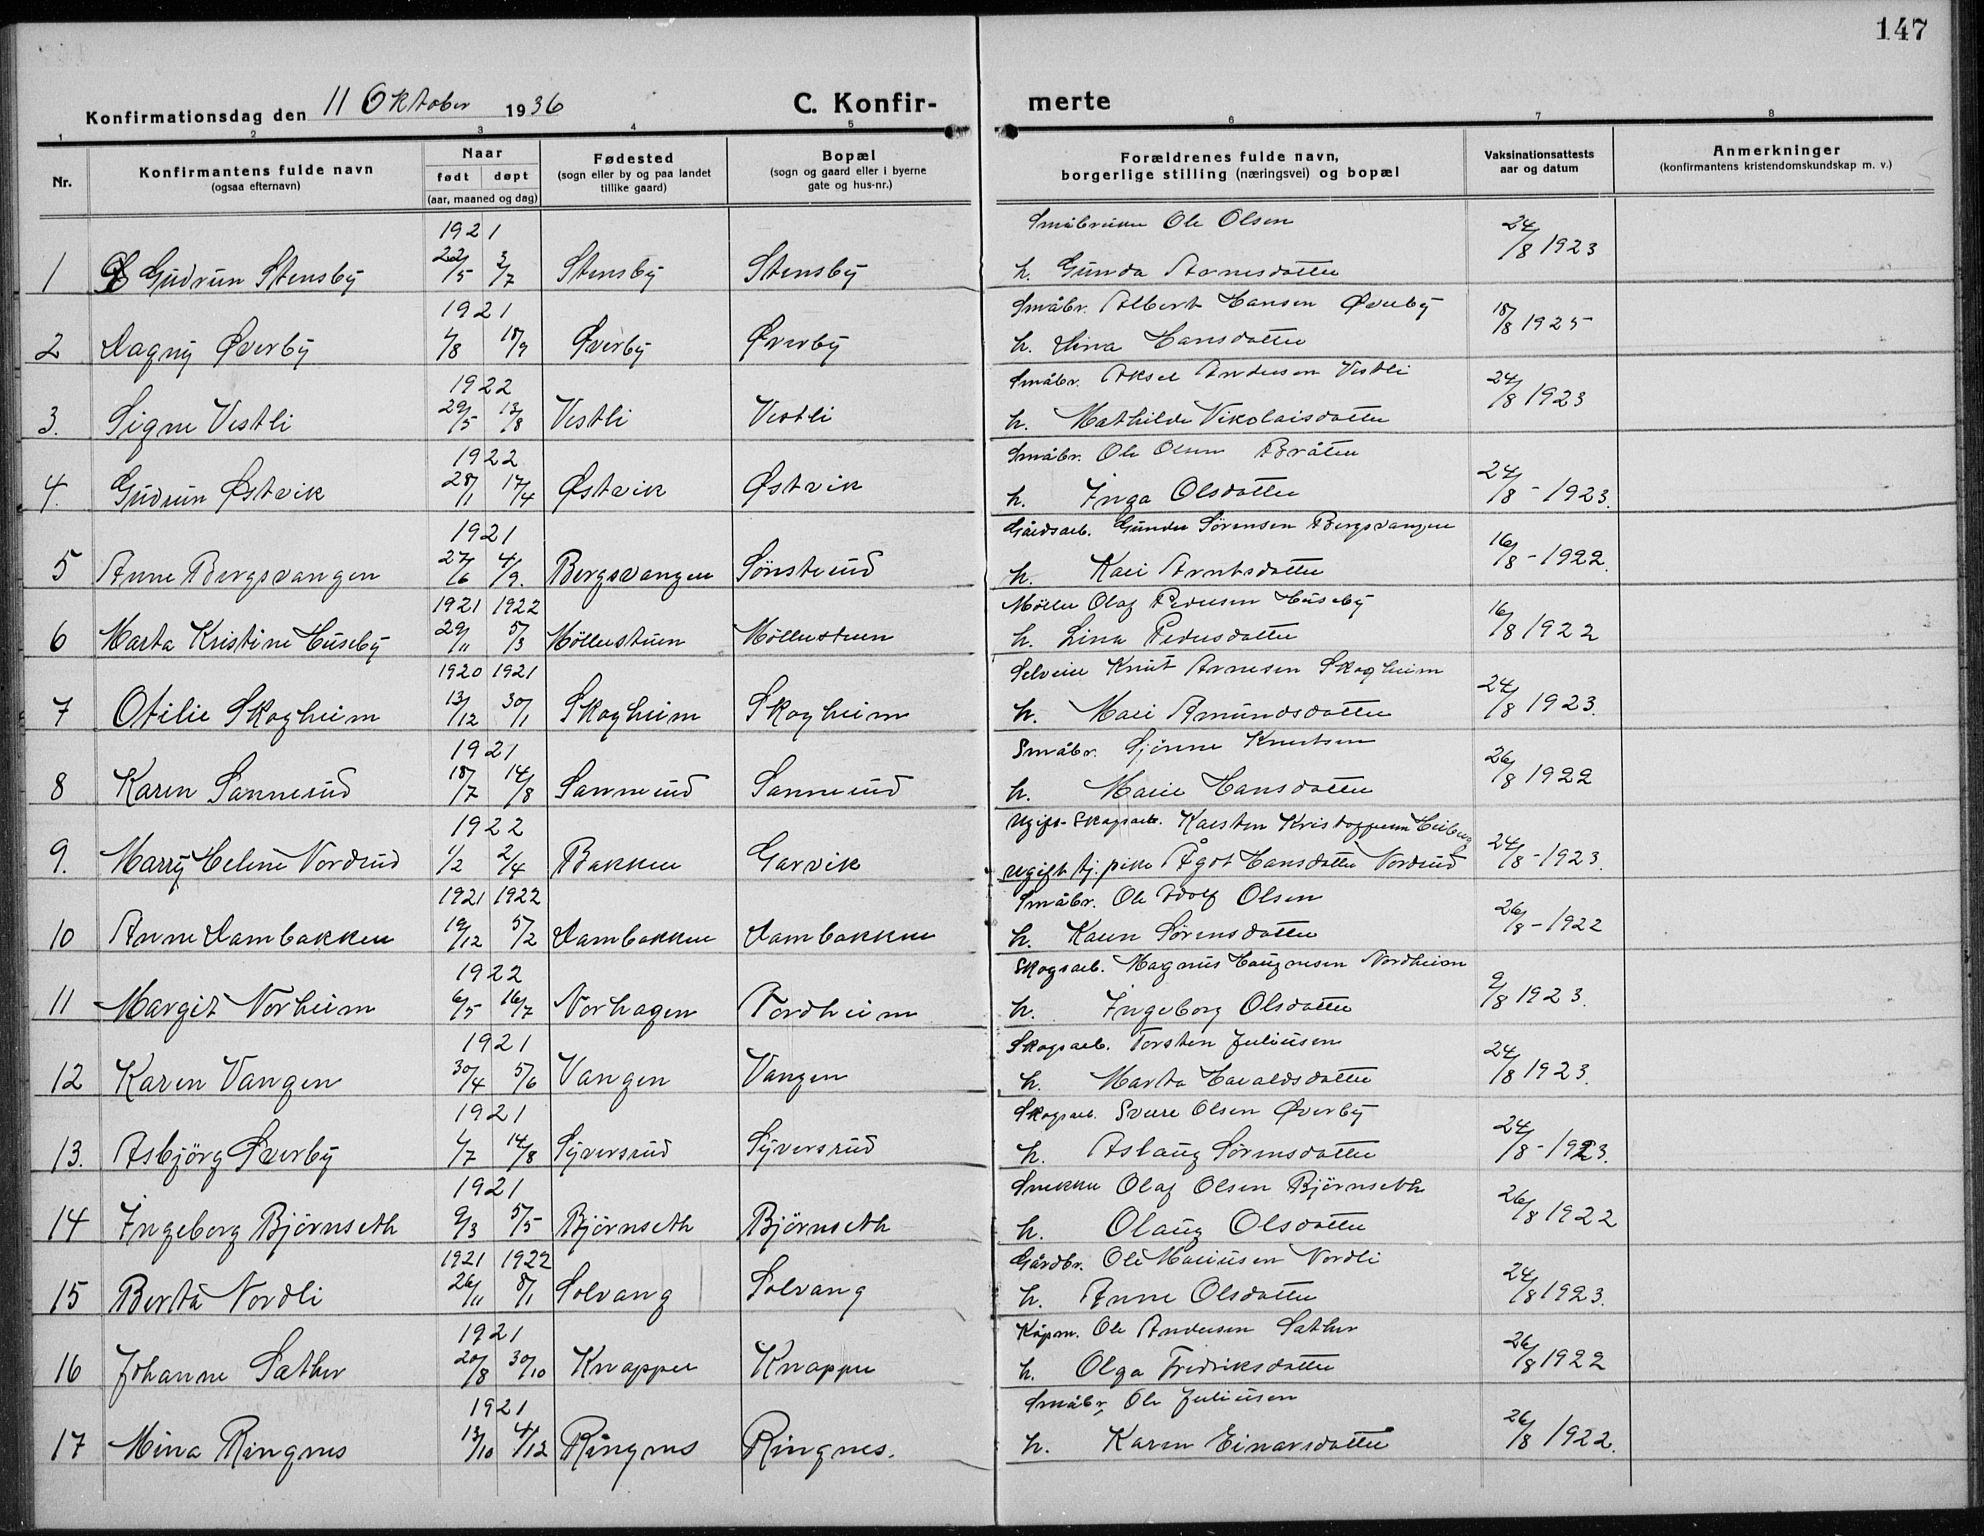 147
Konfirmationsdag den 11 Oktober 1936 C. Konfir- merte
1 2 3 4 5 6 7 8
Nr. Konfirmantens fulde navn (ogsaa efternavn) Naar født døpt (aar, maaned og dag) Fødested (sogn eller by og paa landet tillike gaard) Bopæl (sogn og gaard eller i byerne gate og hus-nr.) Forældrenes fulde navn, borgerlige stilling (næringsvei) og bopæl Vaksinationsattests aar og datum Anmerkninger (konfirmantens kristendomskundskap m. v.)
1921 Småbruker Ole Olsen
1 Gudrun Stensby 22/5 3/7 Stensby Stensby h. Gunda Arnesdatter 24/8 1923
1921 Småbr. Albert Hansen Øverby
2 Dagny Øverby 4/8 18/9 Øverby Øverby h. Hansdatter 18/8 1925
1922 Småbr. Aksel Andersen Vestli
3. Signe Vestli 29/5 13/8 Vestli Vestli h. Mathilde Nikolaisdatter 24/8 1923
1922 Småbr. Ole Olsen Bråten
4. Gudrun Østvik 28/1 17/4 Østvik Østvik h. Inga Olsdatter 24/8 - 1923.
1921 Gårdsarb. Gunder Sørensen Bergsvangen
5 Anne Bergsvangen 27/6 4/9. Bergsvangen Sønsterud h. Kari Arntsdatter 16/8 - 1922.
1921 1922 Møller Olaf Pedersen Huseby
6 Marta Kristine Huseby 29/11 5/3 Møllerstuen Møllerstuen h. Lina Pedersdatter 16/8 1922
1920 1921 Selveier Knut Arnesen Skogheim
7 Otilie Skogheim 13/12 30/1 Skogheim Skogheim h. Mari Amundsdatter 24/8 1923.
1921 Småbr. Sjønne Knutsen
8 Karen Sannerud 18/7 14/8 Sannerud Sannerud h. Marie Hansdatter 26/8 1922
1922 Ugift skogsarb. Karsten Kristoffersen
9. Marry Helene Nordrud 1/2 2/4 Bakken Garvik ugift tj. pike Ågot Hansdatter Nordrud 24/8 - 1923.
1921 1922 Småbr. Ole Adolf Olsen
10 Anne Dambakken 19/12 5/2 Dambakken Dambakken h. Karen Sørensdatter 26/8 - 1922
1922 Skogsarb. Magnus Nordheim
11 Margit Norheim 6/5 16/7 Norhagen Nordheim h. Ingeborg Olsdatter 9/8 1923.
1921 Skogsarb. Torsten Juliusen
12 Karen Vangen 30/4 5/6 Vangen Vangen h. Marta Haraldsdatter 24/8 1923.
1921 Skogsarb. Sverre Olsen Øverby
13. Asbjörg Øverby 4/7 14/8 Syversrud Syversrud h. Aslaug Sørensdatter 24/8 - 1923.
1921 Snekker Olaf Olsen Bjørnseth
14 Ingeborg Bjørnseth 9/3 5/5 Bjørnseth Bjørnseth h. Olaug Olsdatter 26/8 1922
1921 1922 Gårdbr. Ole Mariusen Nordli
15 Berta Nordli 26/11 8/1 Solvang Solvang h. Anne Olsdatter 24/8 1923.
1921 Kjøpm. Ole Andersen Sæther
16 Johanne Sæther 20/8 30/10 Knapper Knapper h. Olga Fredriksdatter 26/8 1922
1921 Småbr. Ole Juliusen
17 Mina Ringnes 13/10 4/12 Ringnes Ringnes. h. Karen Einarsdatter 26/8 1922.